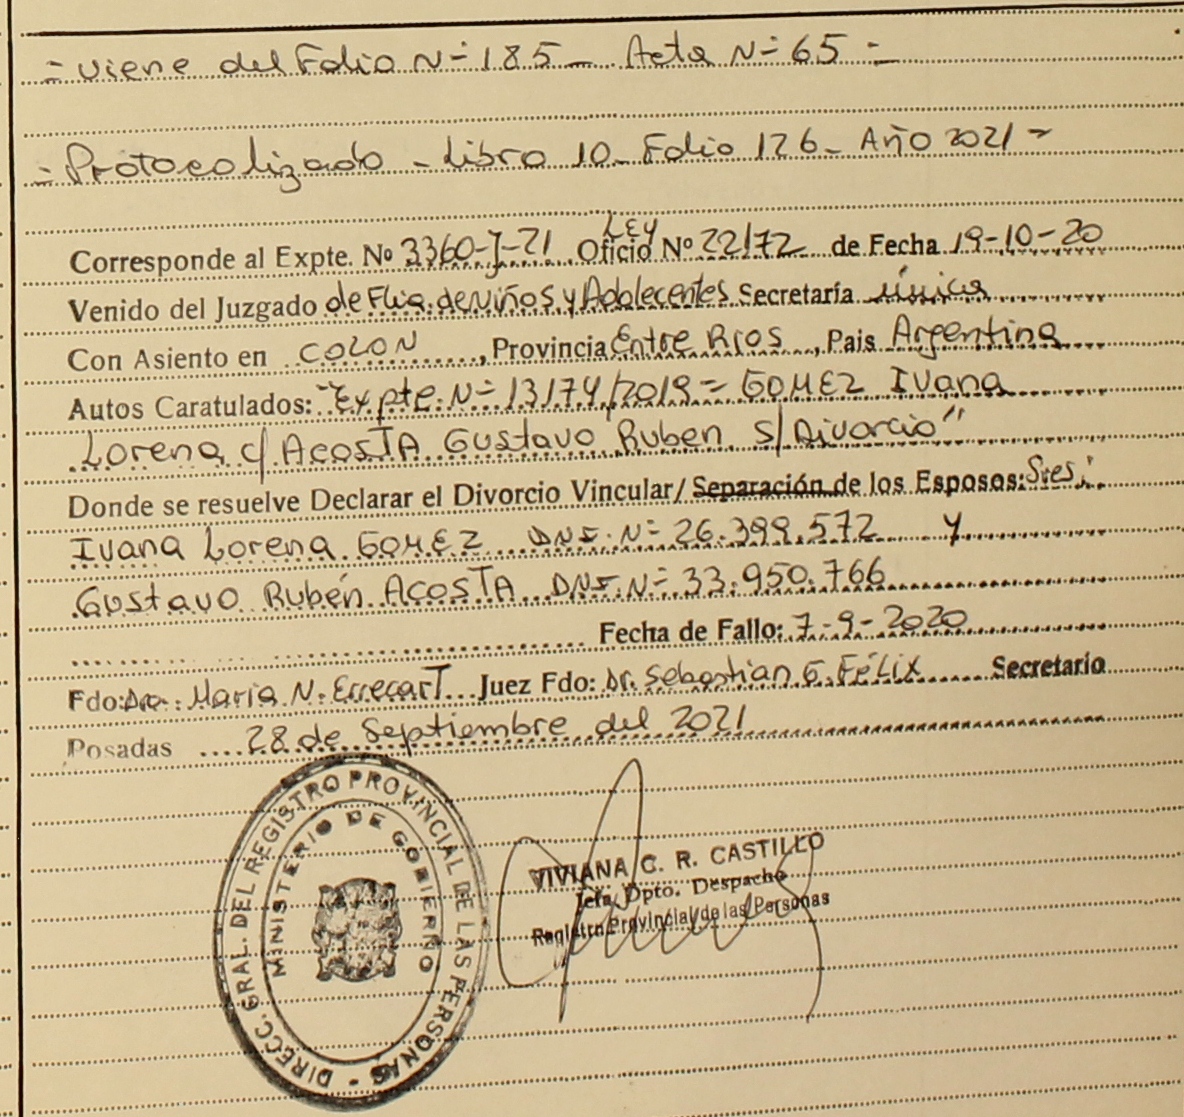 =viene del Folio N=185_ Acta N=65=
=Protocolizado - Libro 10_ Folio 126_ Año 2021=
Corresponde al Expte. Nº 3360-J-21 Oficio LEY Nº 22172 de Fecha 19-10-20
Venido del Juzgado de Flia. de Niños y Adolecentes Secretaría única
Con Asiento en COLON, Provincia Entre Rios, Pais Argentina
Autos Caratulados: "Expte. N=13174/2019= GOMEZ Ivana
Lorena c/ ACOSTA Gustavo Ruben s/Divorcio"
Donde se resuelve Declarar el Divorcio Vincular/ Separación de los Esposos: Sres.:
Ivana Lorena GOMEZ DNI. N=26.399.572 y
Gustavo Rubén ACOSTA DNI. N=33.950.766
Fecha de Fallo: 7-9-2020
Fdo: Dra. Maria N. Errecart Juez Fdo: Dr. Sebastian G. FÉLIX Secretario
Posadas 28 de Septiembre del 2021
DIRECC. GRAL. DEL REGISTRO PROVINCIAL DE LAS PERSONAS -
MINISTERIO DE GOBIERNO
VIVIANA C. R. CASTILLO
Jefa Dpto. Despacho
Registro Provincial de las Personas